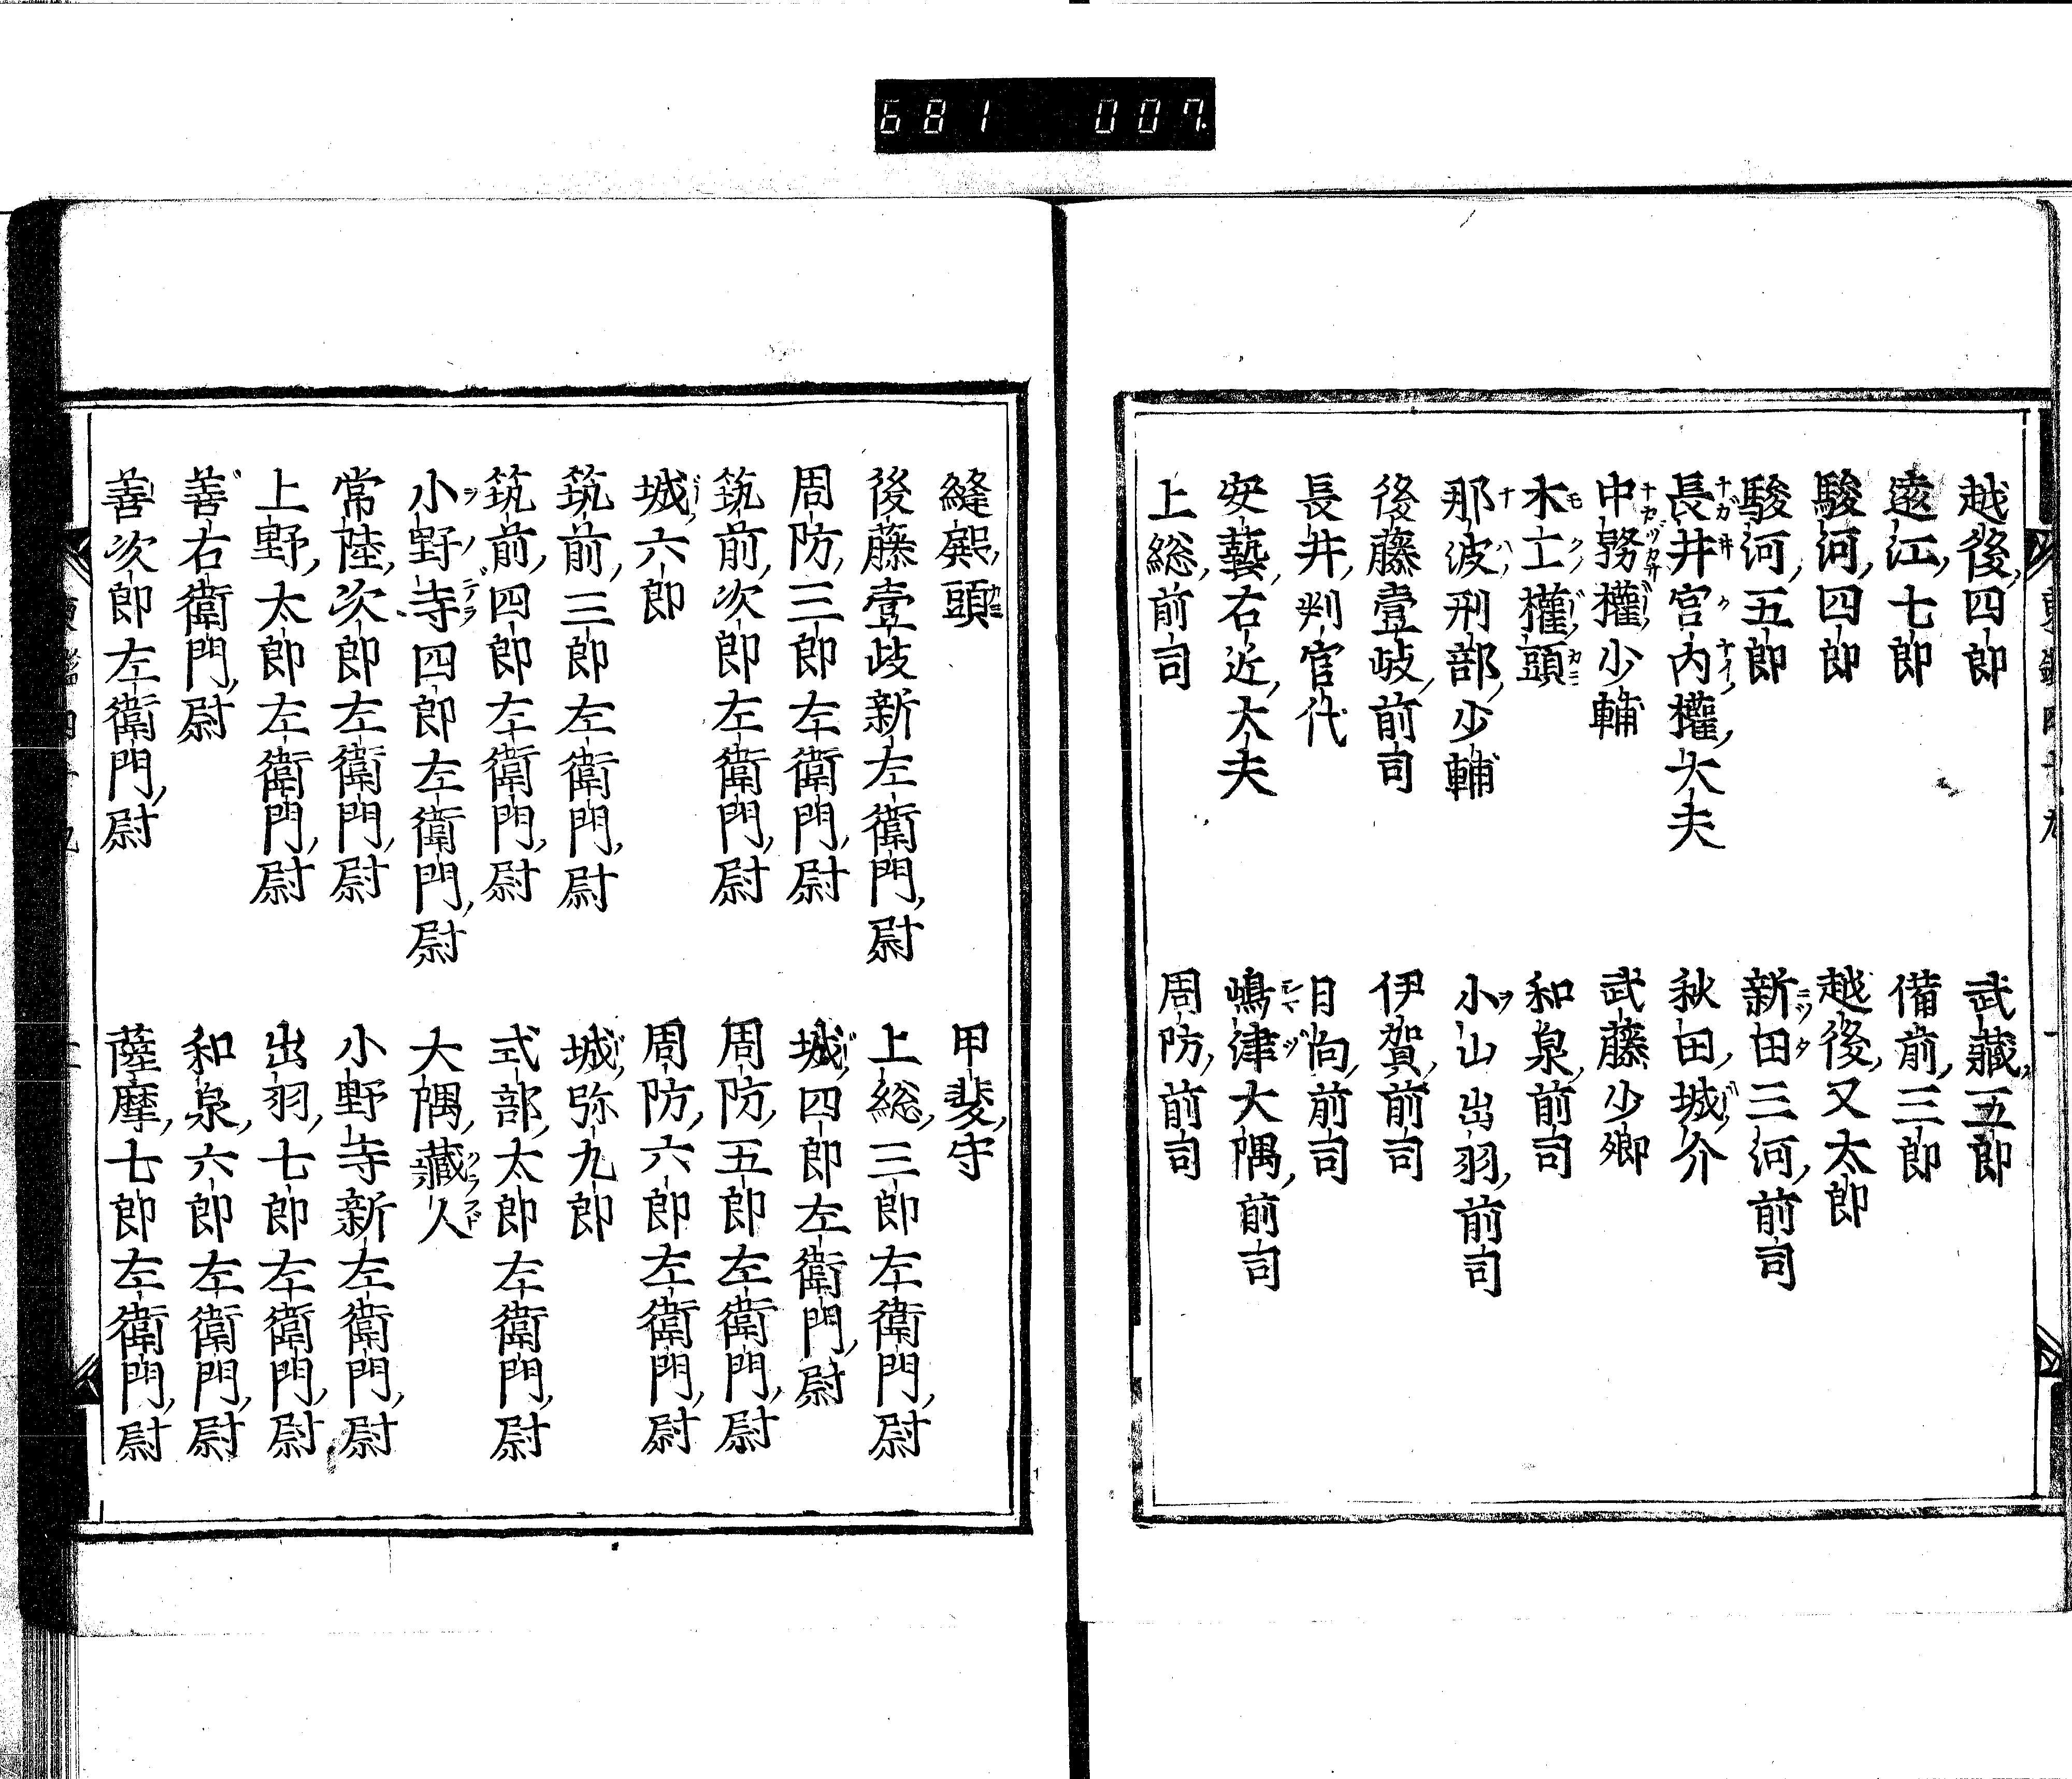 681 007
越後四郎 武藏五郎
遠江七郎 備前三郎
駿河四郎 越後又太郎
駿河五郎 新田三河前司
長井宮内權大夫 秋田城介
中務權少輔 武藤少卿
木工權頭 和泉前司
那波刑部少輔 小山出羽前司
後藤壹岐前司 伊賀前司
長井判官代 日向前司
安藝右近大夫 嶋津大隅前司
上総前司 周防前司
縫殿頭 甲斐守
後藤壹岐新左衛門尉 上総三郎左衛門尉
周防三郎左衛門尉 城四郎左衛門尉
筑前次郎左衛門尉 周防五郎左衛門尉
城六郎 周防六郎左衛門尉
筑前三郎左衛門尉 城弥九郎
筑前四郎左衛門尉 式部太郎左衛門尉
小野寺四郎左衛門尉 大隅藏人
常陸次郎左衛門尉 小野寺新左衛門尉
上野太郎左衛門尉 出羽七郎左衛門尉
善右衛門尉 和泉六郎左衛門尉
善次郎左衛門尉 薩摩七郎左衛門尉